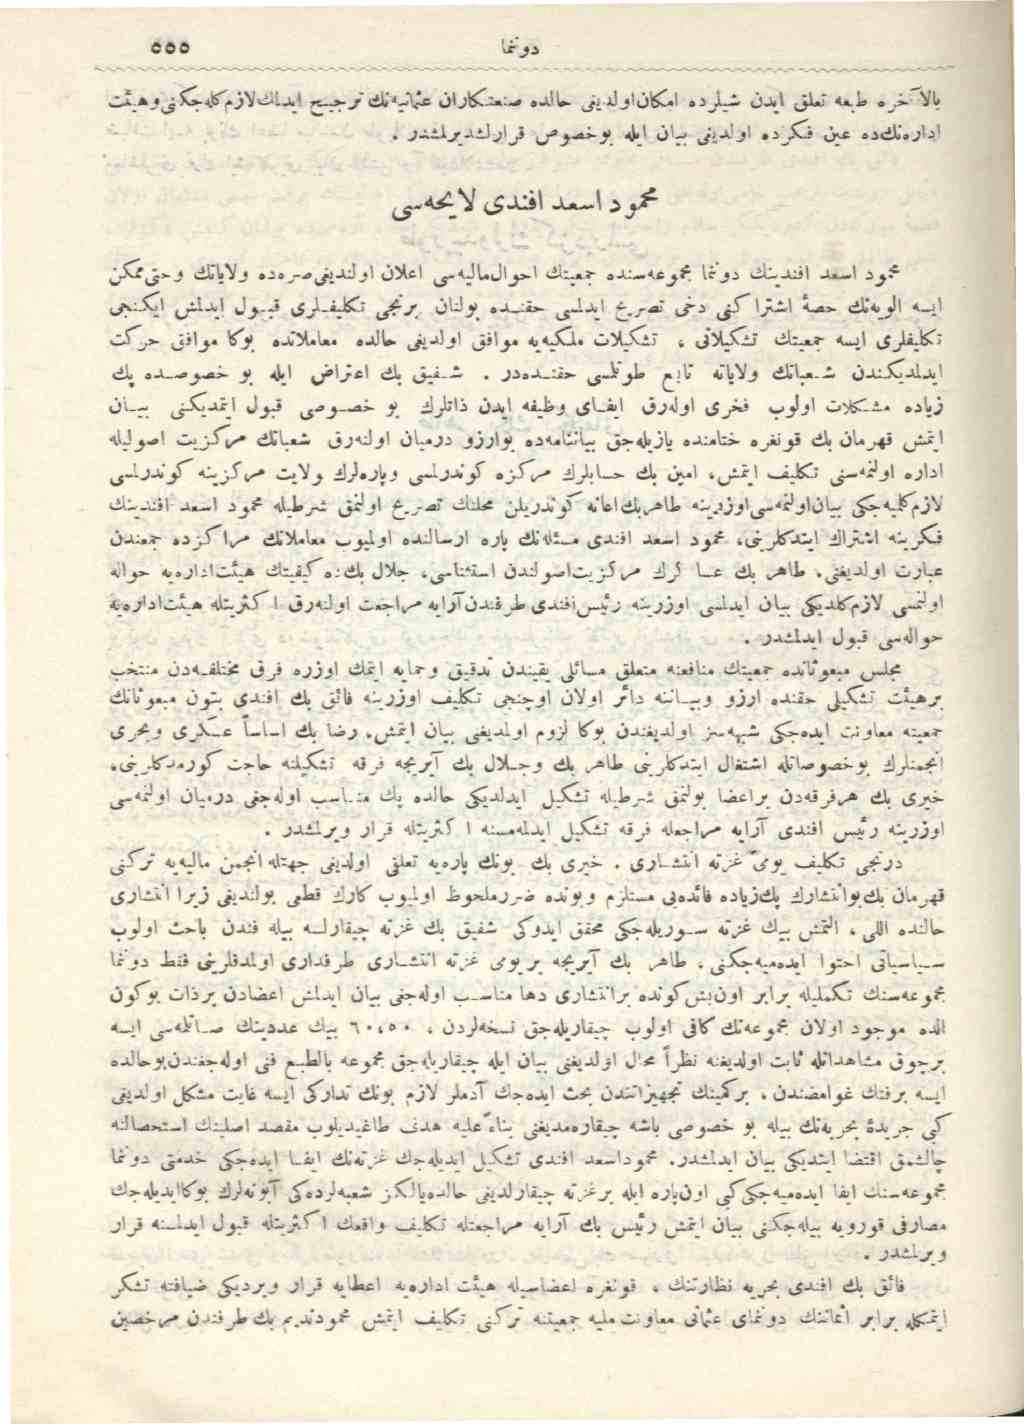 دوننما ٥٥٥
بالآخره طبعه تعلق ايدن شيلرده امكان اولديغى حالده صنعتكاران عثمانيه‌نك ترجيح ايدلك لازم كله‌جكنى وهيئت
اداره‌نك‌ده عين فكرده اولديغى بيان ايله بوخصوص قرارلشديرلمشدر .
محمود اسعد افندى لايحه‌سى
محمود اسعد افندينك دوننما مجموعه‌سنده جمعيتك احوال ماليه‌سى اعلان اولنديغى صره‌ده ولاياتك وحتى ممكن
ايسه الويه‌نك حصۀ اشتراكنى دخى تصريح ايدلسى حقنده بولنان برنجى تكليفلرى قبول ايدلمش ايكنجى
تكليفلرى ايسه جمعيتك تشكيلاتى ، تشكيلات ملكيه‌يه موافق اولديغى حالده معاملاتده بوكا موافق حركت
ايدلمديكندن شعباتك ولاياته تابع طوتلسى حقنده‌در . شفيق بك اعتراض ايله بو خصوصده پك
زياده مشكلات اولوب فخرى اوله‌رق ايفاى وظيفه ايدن ذاتلرك بو خصوصى قبول ايتمديكنى بيان
ايتمش قهرمان بك قونغره ختامنده يازيله‌جق بياننامه‌ده بوارزو درميان اولنه‌رق شعباتك مركزيت اصوليله
اداره اولنمه‌سنى تكليف ايتمش، امين بك حسابلرك مركزه كوندرلسى وپاره‌لرك ولايت مركزينه كوندرلسى
لازم كليه‌جكى بيان اولنمه‌سى اوزرينه طاهر بك اعانه كوندريلن محلك تصريح اولنمق شرطيله محمود اسعد افندينك
فكرينه اشتراك ايتدكلرينى، محمود اسعد افندى مسئله‌نك پاره ارسالنده اولميوب معاملاتك مراكزده جمعندن
عبارت اولديغنى، طاهر بك عساكرك مركزيت اصولندن استثناسى، جلال بك‌ده كيفيتك هيئت اداره‌يه حواله
اولنمسى لازم كلديكى بيان ايدلسى اوزرينه رئيس افندى طرفندن آرايه مراجعت اولنه‌رق اكثريتله هيئت اداره‌يه
حواله‌سى قبول ايدلمشدر .
مجلس مبعوثانده جمعيتك منافعنه متعلق مسائلى يقيندن تدقيق وحمايه ايتمك اوزره فرق مختلفه‌دن منتخب
برهيئت تشكيلى حقنده ارزو وبياننه دائر اولان اوچنجى تكليف اوزرينه فائق بك افندى بتون مبعوثانك
جمعيته معاونت ايده‌جكى شبهه‌سز اولديغندن بوكا لزوم اولمديغنى بيان ايتمش، رضا بك اساساً عسكرى وبحرى
انجمنلرك بوخصوصاتله اشتغال ايتدكلرينى طاهر بك وجلال بك آيريجه فرقه تشكيلنه حاجت كورمدكلرينى،
خيرى بك هرفرقه‌دن براعضا بولنمق شرطيله تشكيل ايدلديكى حالده پك مناسب اوله‌جغى درميان اولنمه‌سى
اوزرينه رئيس افندى آرايه مراجعله فرقه تشكيل ايدلمه‌مسنه اكثريتله قرار ويرلمشدر .
دردنجى تكليف يومى غزته انتشارى . خيرى بك بونك پاره‌يه تعلقى اولديغى جهتله انجمن ماليه‌يه تركنى
قهرمان بك بوانتشارك پك زياده فائده‌يى مستلزم وبونده ضررملحوظ اولميوب كارك قطعى بولنديغى زيرا انتشارى
حالنده اللى ، التمش بيك غزته سوريله‌جكى محقق ايدوكى شفيق بك غزته چيقارلسه بيله فندن باحث اولوب
سياسياتى احتوا ايده‌ميه‌جكنى ، طاهر بك آيريجه بر يومى غزته انتشارى طرفدارى اولمدقلرينى فقط دوننما
مجموعه‌سنك تكمليله برابر اون‌بش كونده برانتشارى دها مناسب اوله‌جغى بيان ايدلمش اعضادن برذات بوكون
الده موجود اولان مجموعه‌نك كافى اولوب چيقاريله‌جق نسخه‌لردن ، ٦٠،٥٠ بيك عددينك صاتلمه‌سى ايسه
برچوق مشاهداتله ثابت اولديغنه نظراً محال اولديغنى بيان ايله چيقاريله‌جق مجموعه بالطبع فنى اوله‌جغندن بوحالده
ايسه برفنك غوامضندن ، بركمينك تجهيزاتندن بحث ايده‌جك آدملر لازم بونك تداركى ايسه غايت مشكل اولديغى
كبى جريدۀ بحريه‌نك بيله بو خصوصى باشه چيقاره‌مديغنى بناءً عليه هدف طاغيديلوب مقصد اصلينك استحصالنه
چالشمق اقتضا ايتديكى بيان ايدلمشدر. محمود اسعد افندى تشكيل ايديله‌جك غزته‌نك ايفا ايده‌جكى خدمتى دوننما
مجموعه‌سنك ايفا ايده‌ميه‌جكى كبى اون پاره ايله برغزته چيقارلديغى حالده يالكز شعبه‌لرده‌كى آبونه‌لرك بوكا ايديله‌جك
مصارفى قورويه بيله‌جكنى بيان ايتمش رئيس بك آرايه مراجعتله تكليف واقعك اكثريتله قبول ايدلمسنه قرار
ويرلمشدر .
فائق بك افندى بحريه نظارتنك ، قونغره اعضاسيله هيئت اداره‌يه اعطايه قرار ويرديكى ضيافته تشكر
ايتمكله برابر اثماننك دوننماى عثمانى معاونت مليه جمعيتنه تركنى تكليف ايتمش محمود نديم بك طرفندن مرخصين